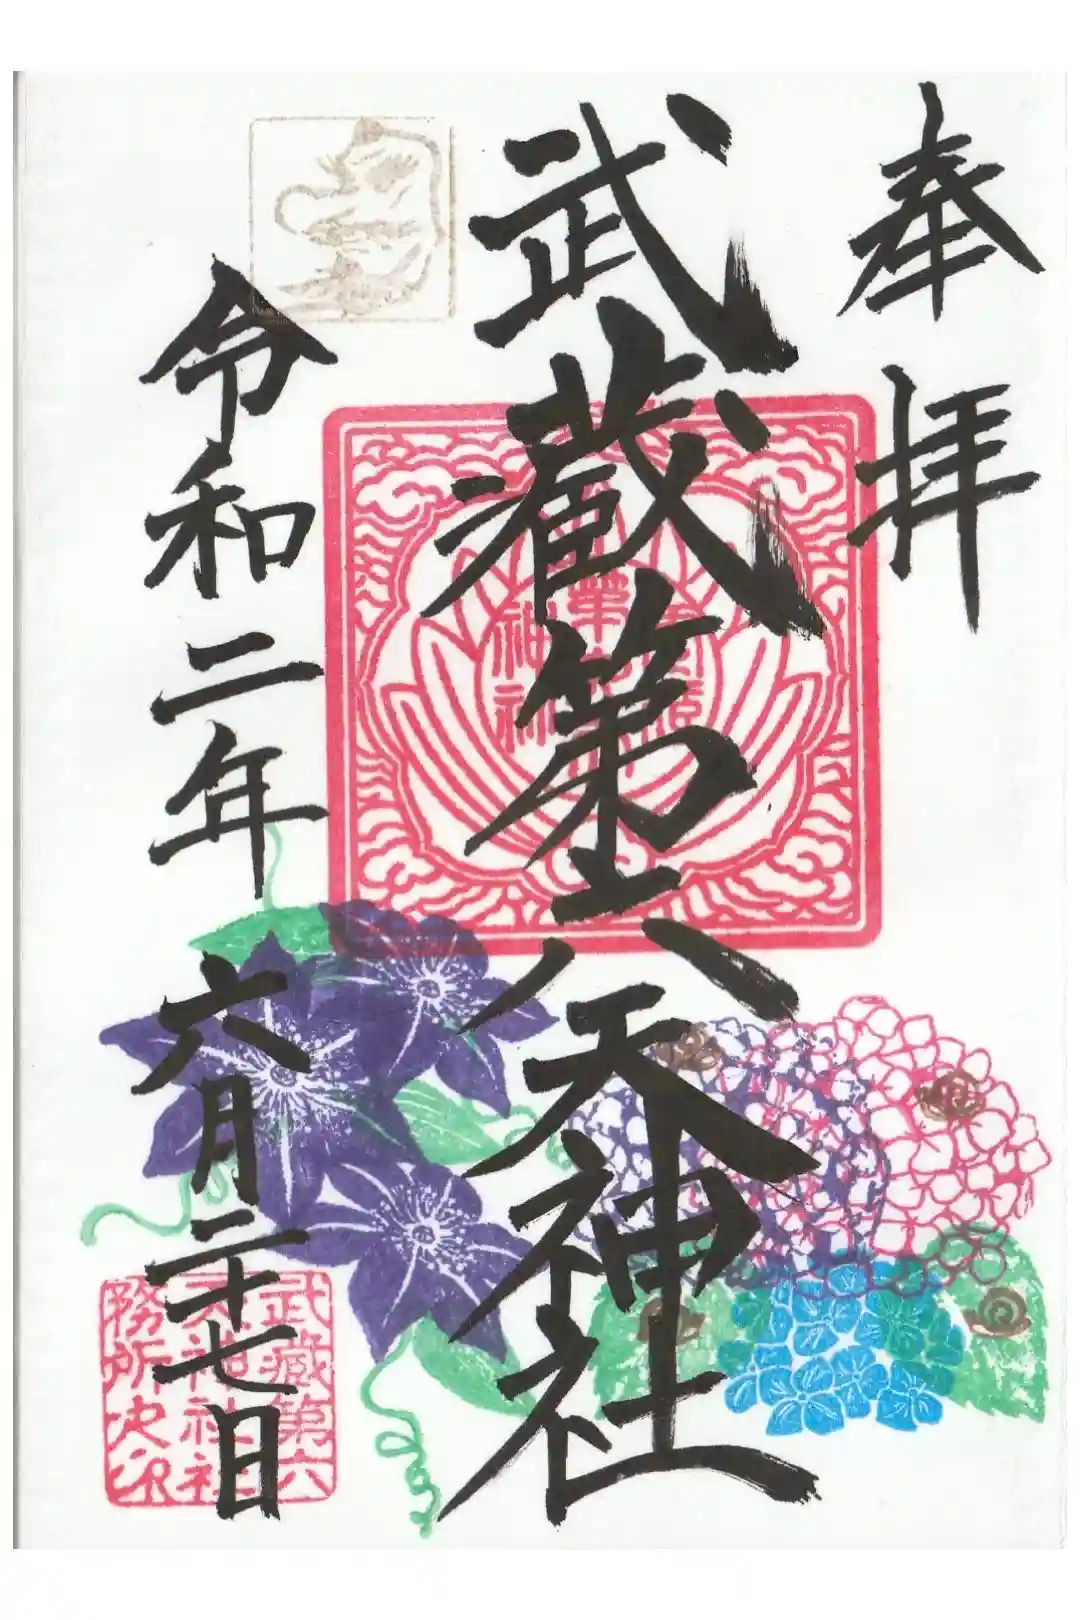 奉拝
武蔵第六天神社
令和二年六月二十七日
武蔵第六
天神社社
務所之印